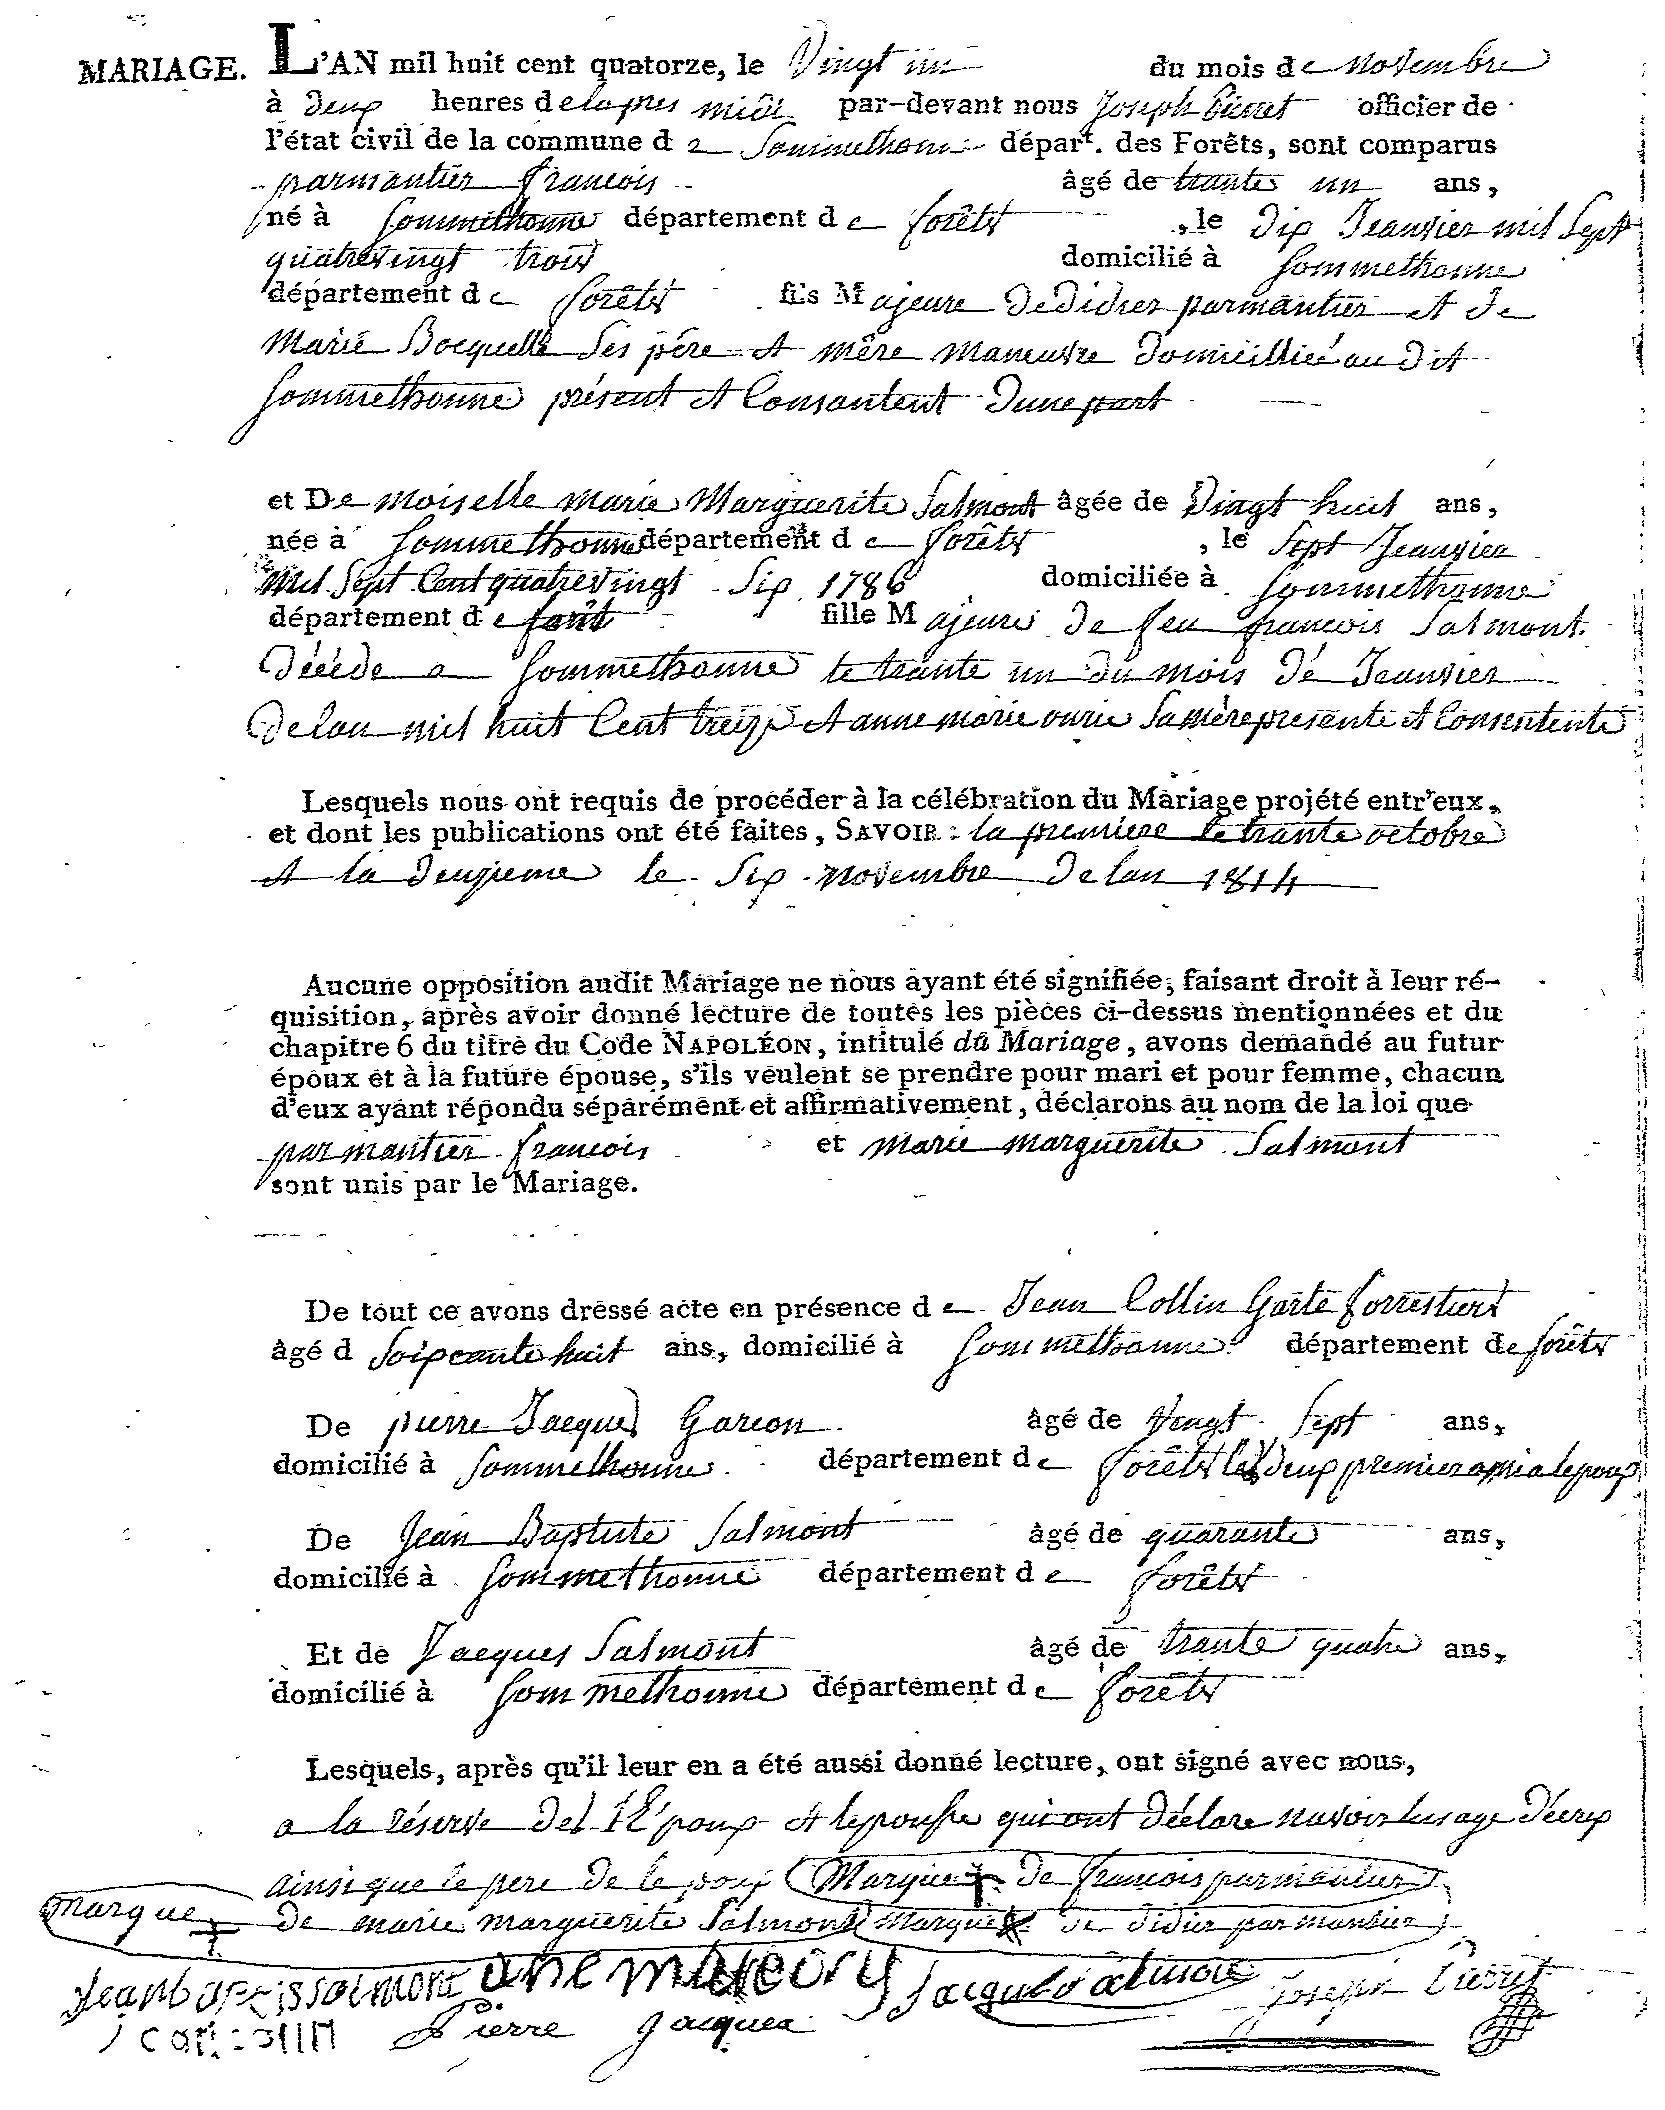 MARIAGE. L'AN mil huit cent quatorze, le Vingt un du mois de novembre
à deux heures delapres midi par-devant nous Joseph Pierret officier de
l'état civil de la commune de Sommethonne départ. des Forêts, sont comparus
parmantier francois âgé de trante un ans,
né à Sommethonne département de forêts, le dix Jeanvier mil Sept
quatrevingt trois domicilié à Sommethonne
département de forêts fils Majeure de didier parmantier et de
Marie Bocquelle Ses pére et mêre maneuvre domicillié au dit
Sommethonne présent et Consantent dune part
et Demoiselle marie Marguerite Salmont âgée de Vingt huit ans,
née à Sommethonne département de forêts, le Sept Jeanvier
Mil Sept Cent quatrevingt Six 1786 domiciliée à Sommethonne
département de forêt fille Majeure de feu francois Salmont.
décéde a Sommethonne le trante un du mois dé Jeanvier
delan mil huit Cent treize et anne marie ourie Sa mère presente et Consentente
Lesquels nous ont requis de procéder à la célébration du Mariage projété entr'eux,
et dont les publications ont été faites, SAVOIR : la premiere le trante octobre
et la deuxieme le Six novembre delan 1814
Aucune opposition audit Mariage ne nous ayant été signifiée; faisant droit à leur ré-
quisition, après avoir donné lecture de toutes les pièces ci-dessus mentionnées et du
chapitre 6 du titre du Code NAPOLÉON, intitulé du Mariage, avons demandé au futur
époux et à la future épouse, s'ils veulent se prendre pour mari et pour femme, chacun
d'eux ayant répondu séparément et affirmativement, déclarons au nom de la loi que
parmantier francois et marie marguerite Salmont
sont unis par le Mariage.
De tout ce avons dressé acte en présence de Jean Collin Garte forrestiert
âgé d Soixcante huit ans, domicilié à Sommethonne département de forêts
De pierre Jacques Garcon âgé de Vingt Sept ans,
domicilié à Sommethonne département de forêts les deux premier amie a lepoux
De Jean Baptiste Salmont âgé de quarante ans,
domicilié à Sommethonne département de forêts
Et de Jacques Salmont âgé de trante quatre ans,
domicilié à Sommethonne département de forêts
Lesquels, après qu'il leur en a été aussi donné lecture, ont signé avec nous,
a la réserve del l'Époux et lepousse qui ont déclare navoir lusage décrix
ainsi que le pere de le poux Marque + de francois parmantier
marque + de marie marguerite Salmont marque + de didier parmantier
Jean bapt is salmont ane marie oury Jacques salmont Joseph Pierret
Jean collin Pierre Jacques